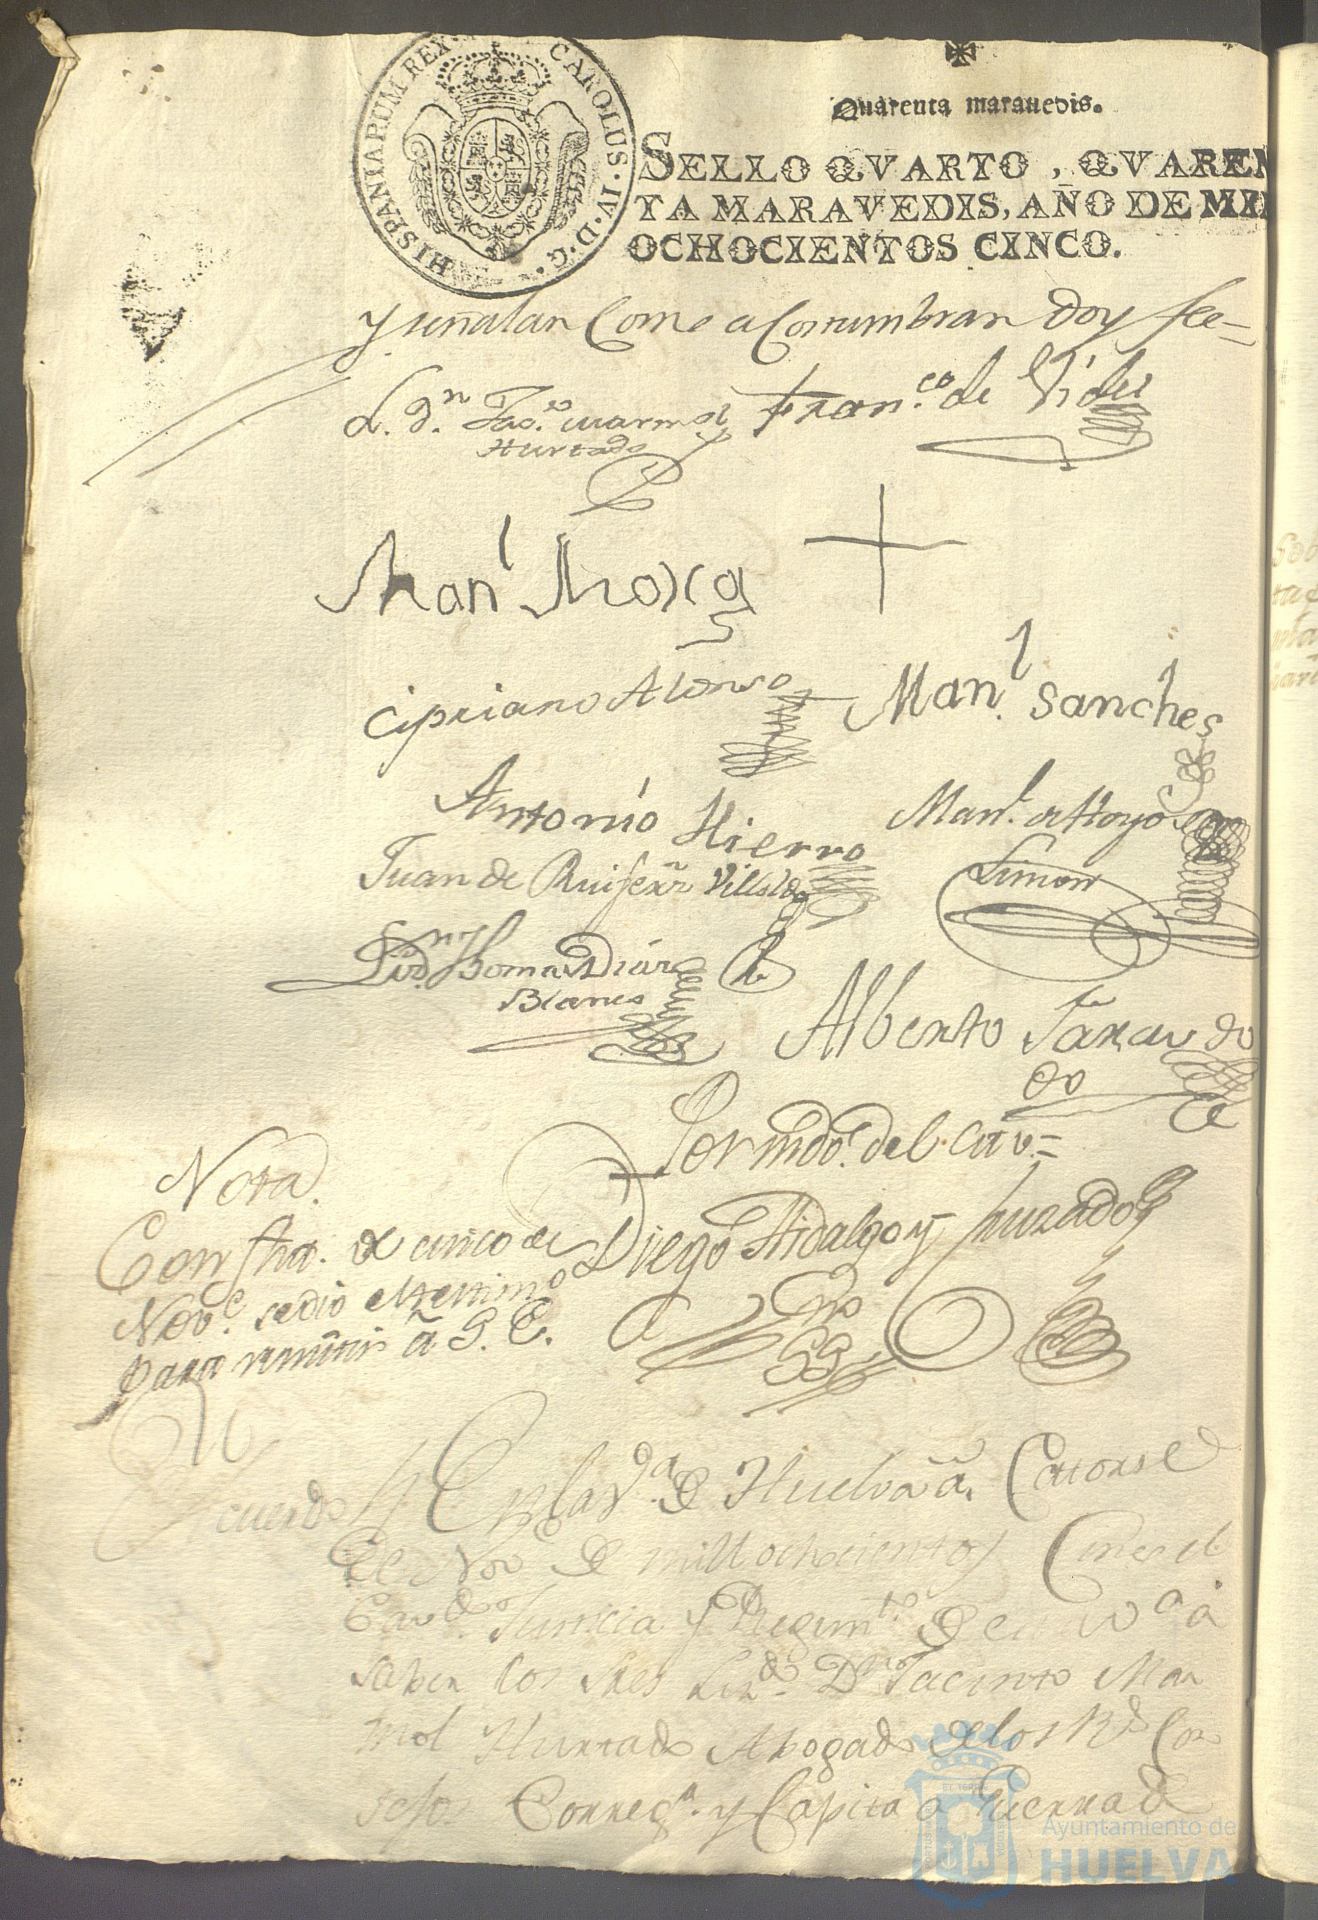 HISPANIARUM REX · CAROLUS · IV · D · G ·
Quarenta maravedis.
SELLO QVARTO, QVAREN
TA MARAVEDIS, AÑO DE MIL
OCHOCIENTOS CINCO.
y señalan Como acostumbran Doy fee=
L. Dn. Jao.to Marmol
Hurtado
Fran.co de Vides
Man.l Mora
Cipriano Alonso
Man.l Sanches
Antonio Hierro
Man.l de Hoyo
Limon
Juan de Ruifernz Villoldo
Thomas Diaz
Blanco
Alberto
Por mdo. del Cav.=
Diego Hidalgo y Huzado
Nota.
Con fha. de cinco de
Nov.e se dio el testimo
para remitir á S. E.
Acuerdo
En la V.a de Huelva á Catorse
de Nov.e de mill ochocientos Cinco el
Cav.do Justicia y Regim.to de esta v.a á
saber los Sres Liz.do Dn Jacinto Mar
mol Hurtado Abogado de los R.s Con
sejos Correg.r y Capitan a Guerra de
Ayuntamiento de
HUELVA